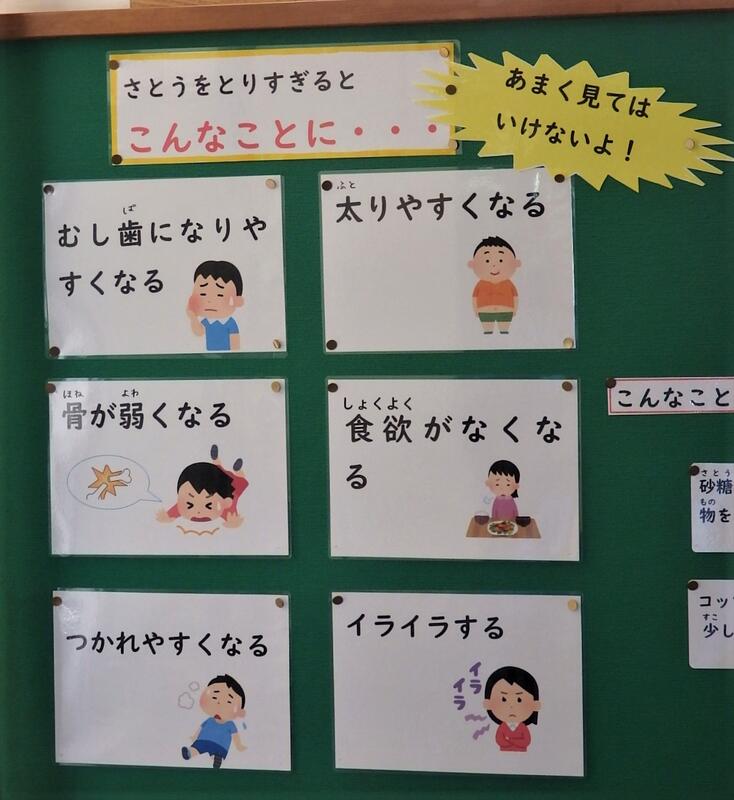 さとうをとりすぎると
こんなことに・・・
あまく見ては
いけないよ！
むし歯になりや
ば
すくなる
ふと
太りやすくなる
ほね よわ
骨が弱くなる
しょくよく
食欲がなくな
る
つかれやすくなる
イライラする
イライラ
こんなこと
さとう
砂糖
もの
物を
コッ
すこ
少し